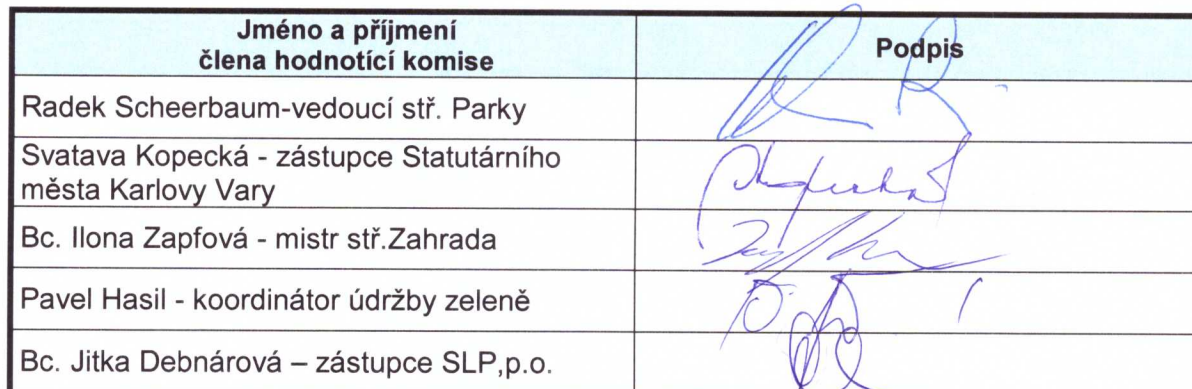 Jméno a příjmení
člena hodnotící komise
Podpis
Radek Scheerbaum-vedoucí stř. Parky
Svatava Kopecká - zástupce Statutárního
města Karlovy Vary
Bc. Ilona Zapfová - mistr stř.Zahrada
Pavel Hasil - koordinátor údržby zeleně
Bc. Jitka Debnárová – zástupce SLP,p.o.